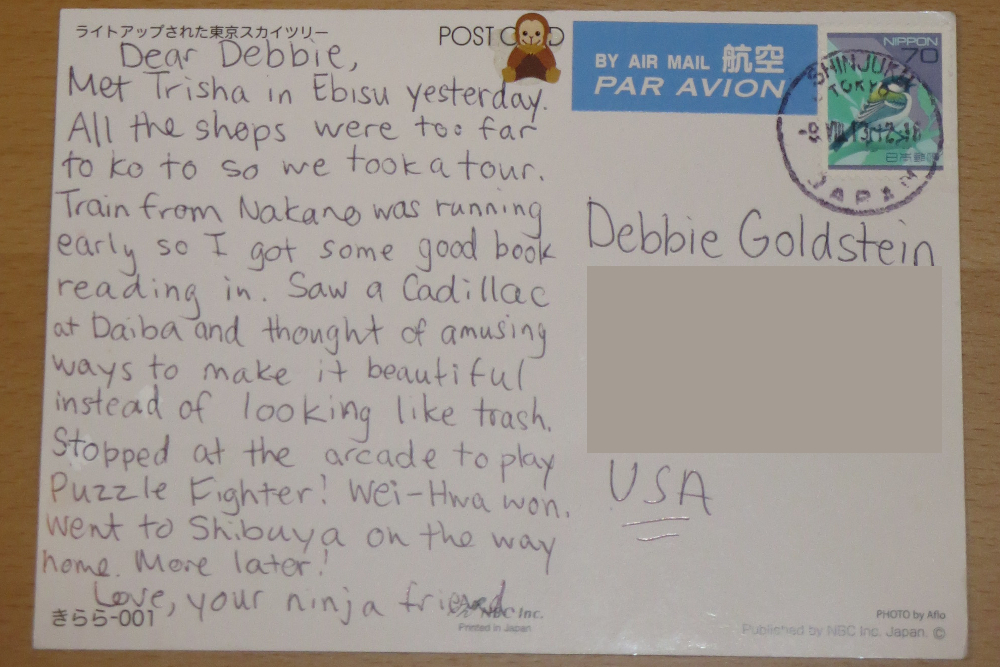 ライトアップされた東京スカイツリー
POST C
Dear Debbie,
Met Trisha in Ebisu yesterday.
All the shops were too far
to ko to so we took a tour.
Train from Nakano was running
early so I got some good book
reading in. Saw a Cadillac
at Daiba and thought of amusing
ways to make it beautiful
instead of looking like trash.
Stopped at the arcade to play
Puzzle Fighter! Wei-Hwa won.
Went to Shibuya on the way
home. More later!
Love, your ninja friend
きらら-001
NBC Inc.
Printed in Japan
BY AIR MAIL 航空
PAR AVION
NIPPON
70
日本郵便
SHINJUKU
TOKYO
JAPAN
Debbie Goldstein
USA
PHOTO by Aflo
Published by NBC Inc. Japan. ©